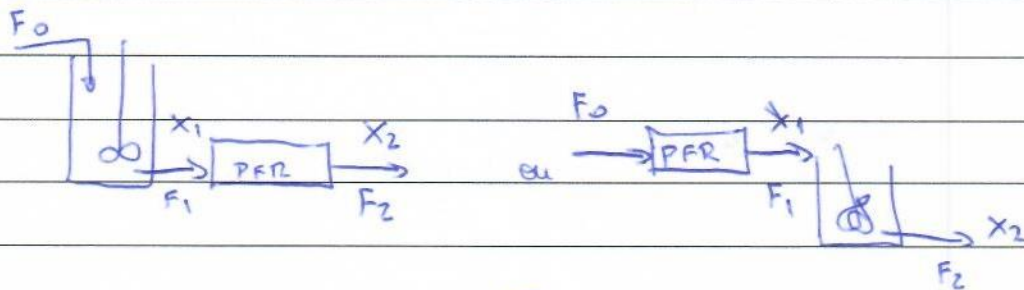 F0
X1 PFR X2
F1 F2
ou
F0
PFR X1
F1
X2
F2